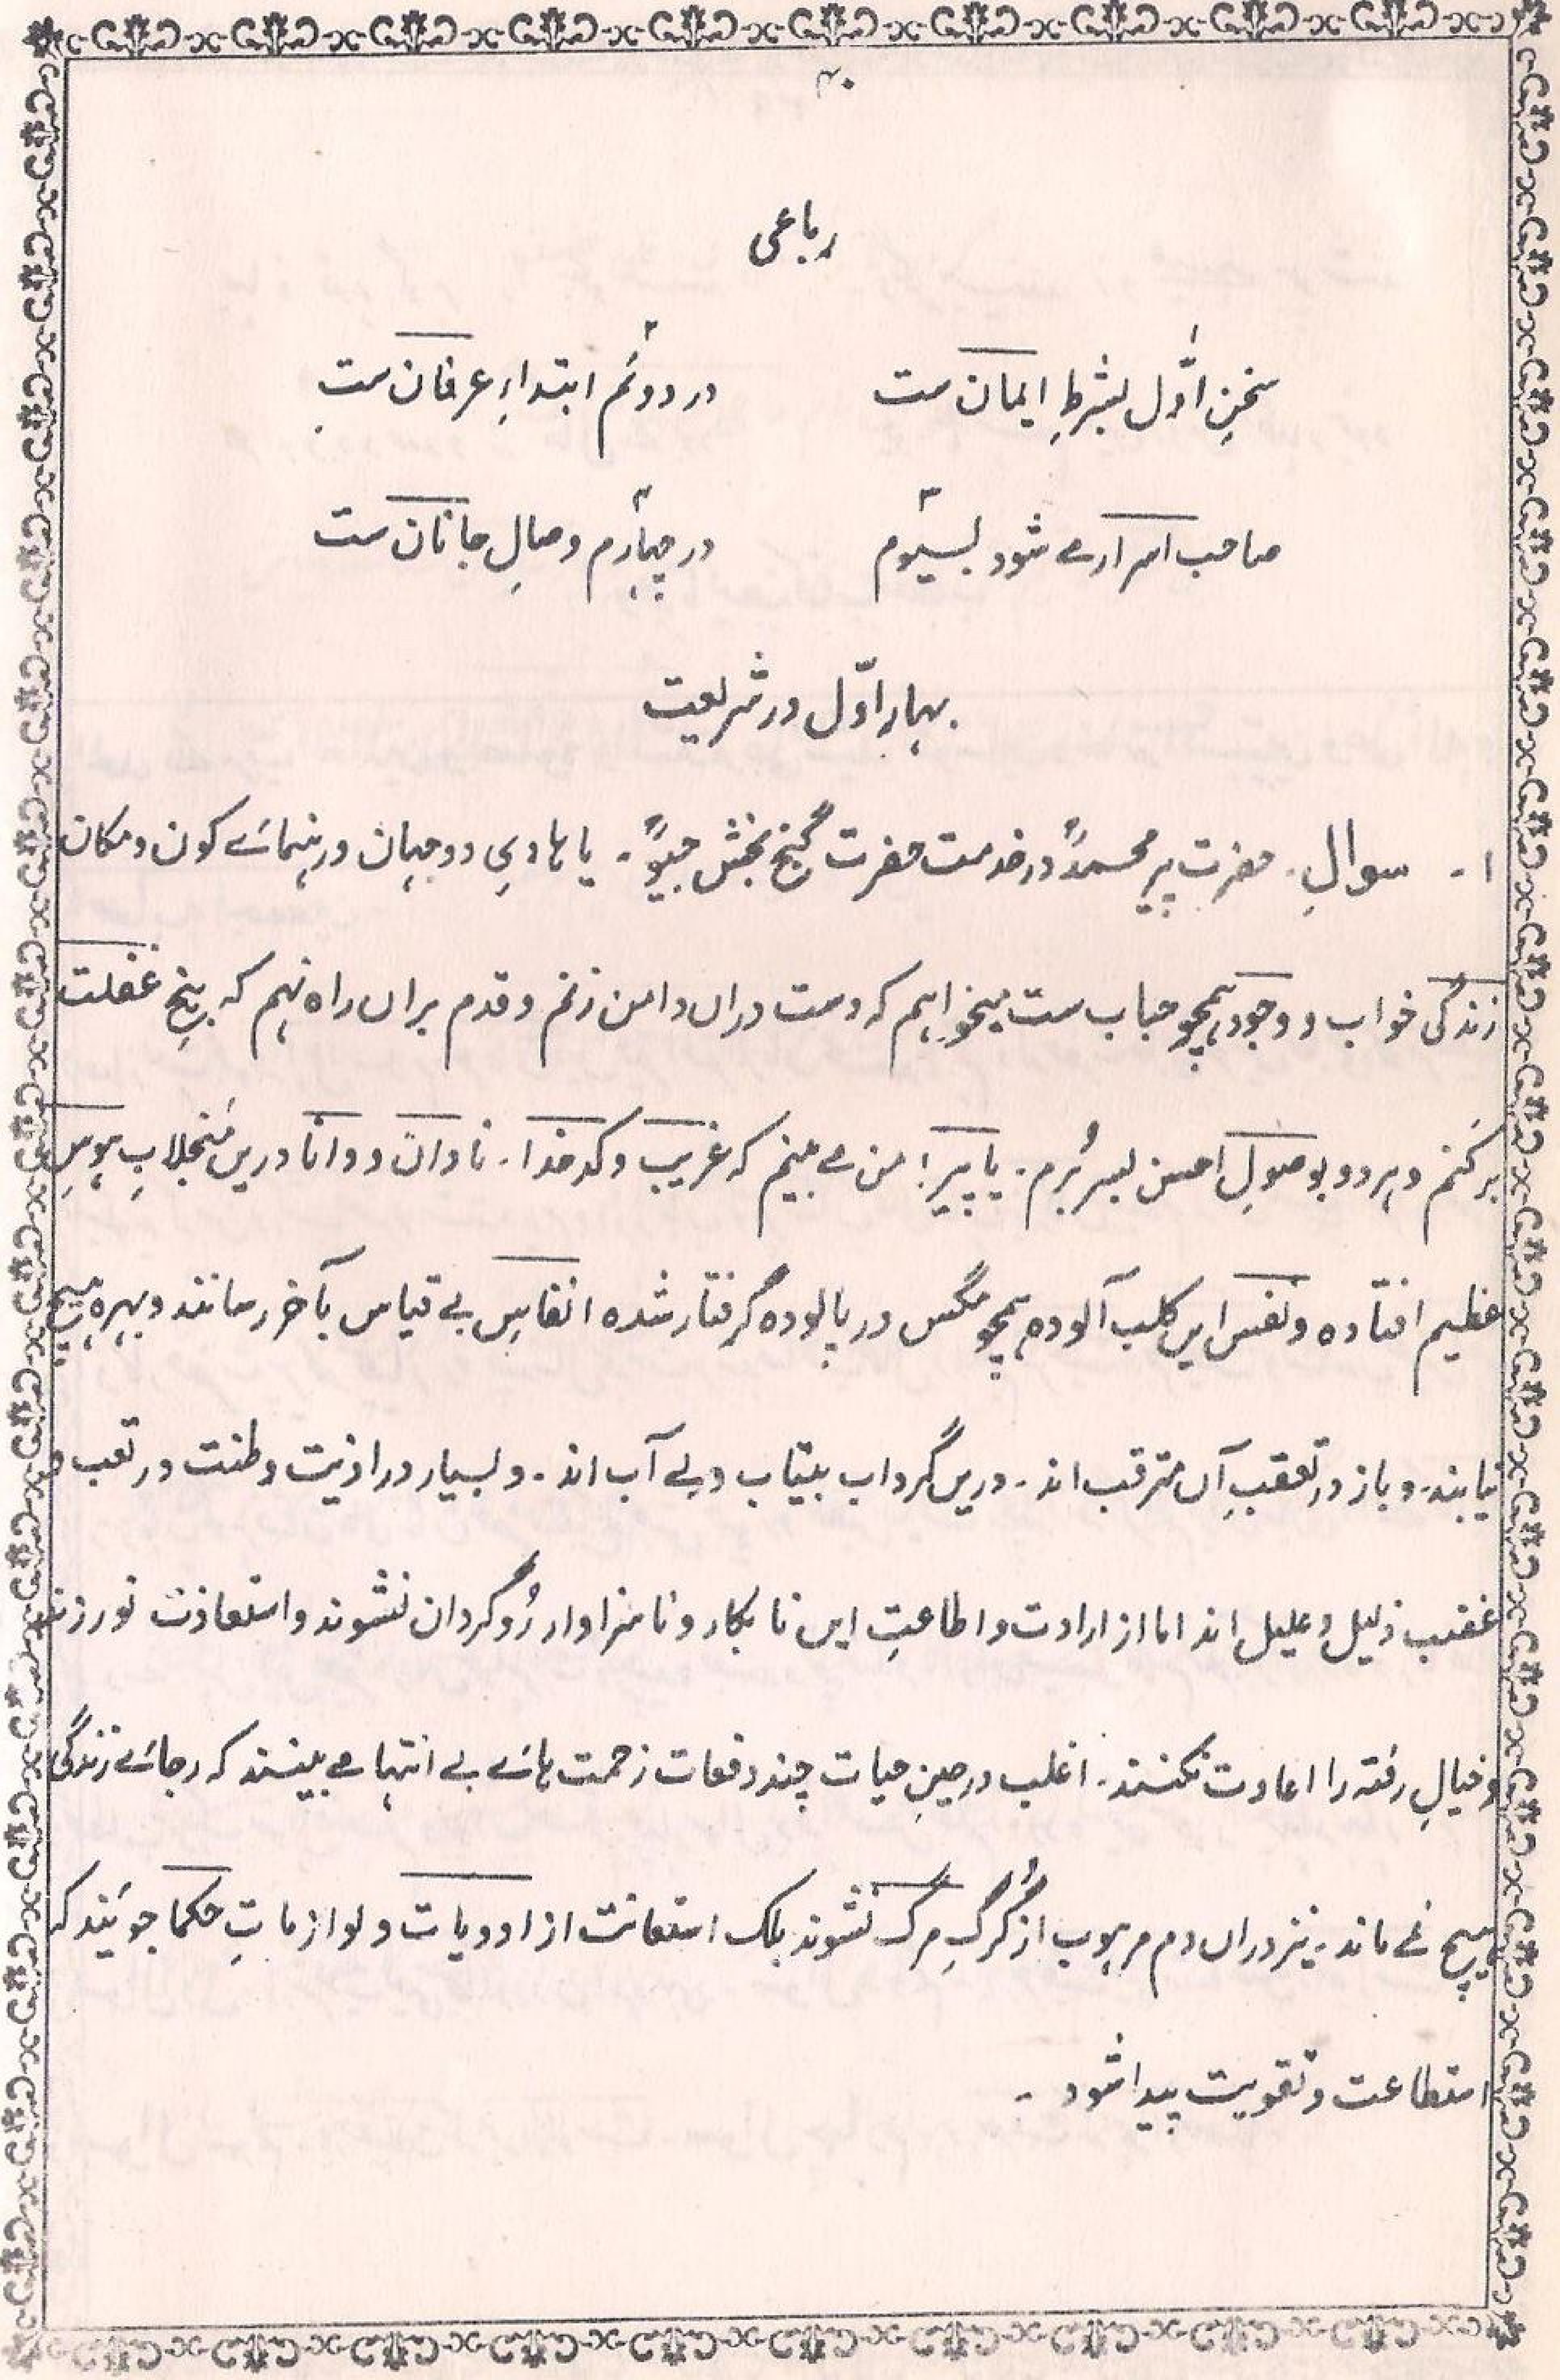 ۴۰
رباعی
سخنِ اوّل بشرطِ ایمان ست در دوئم ابتداءِ عرفان ست
صاحب اسرارے شود بسیوم در چہارم وصالِ جانان ست
بہارِ اوّل در شریعت
۱- سوالِ۔ حضرت پیر محمدؐ در خدمت حضرت گنج بخش جیوؒ۔ یا ہادیِ دو جہان و رہنمائے کون و مکان
زندگی خواب و وجود ہمچو حباب ست میخواہم کہ دست دراں دامن زنم و قدم براں راہ نہم کہ بیخِ غفلت
برکنم و ہر دو بوصولِ احسن بسر بُرم۔ یا پیر! من مے بینم کہ غریب و کدخدا۔ نادان و دانا دریں منجلابِ ہوسِ
عظیم افتادہ و نفس ایں کلب آلودہ ہمچو مگس در پالودہ گرفتار شدہ انفاسِ بے قیاس بآخر رسانند و بہرہ ہیچ
نیابند۔ و باز در تعقبِ آں مترقب اند۔ دریں گرداب بیتاب و بے آب اند۔ و بسیار در اذیت و طنت در تعب و
غضب ذلیل و علیل اند اما از ارادت و اطاعتِ ایں نابکار و ناسزاوار رُوگردان نشوند و استعاذت نورزند
و خیالِ رفتہ را اعادت نکنند۔ اغلب در حینِ حیات چند دفعات زحمت ہائے بے انتہا مے بینند کہ رجائے زندگی
ہیچ نمے ماند۔ نیز دراں دم مرہوب از گُرگِ مرگ نشوند بلک استعانت از ادویات و لوازماتِ حکما جویند کہ
استطاعت و تقویت پیدا شود۔